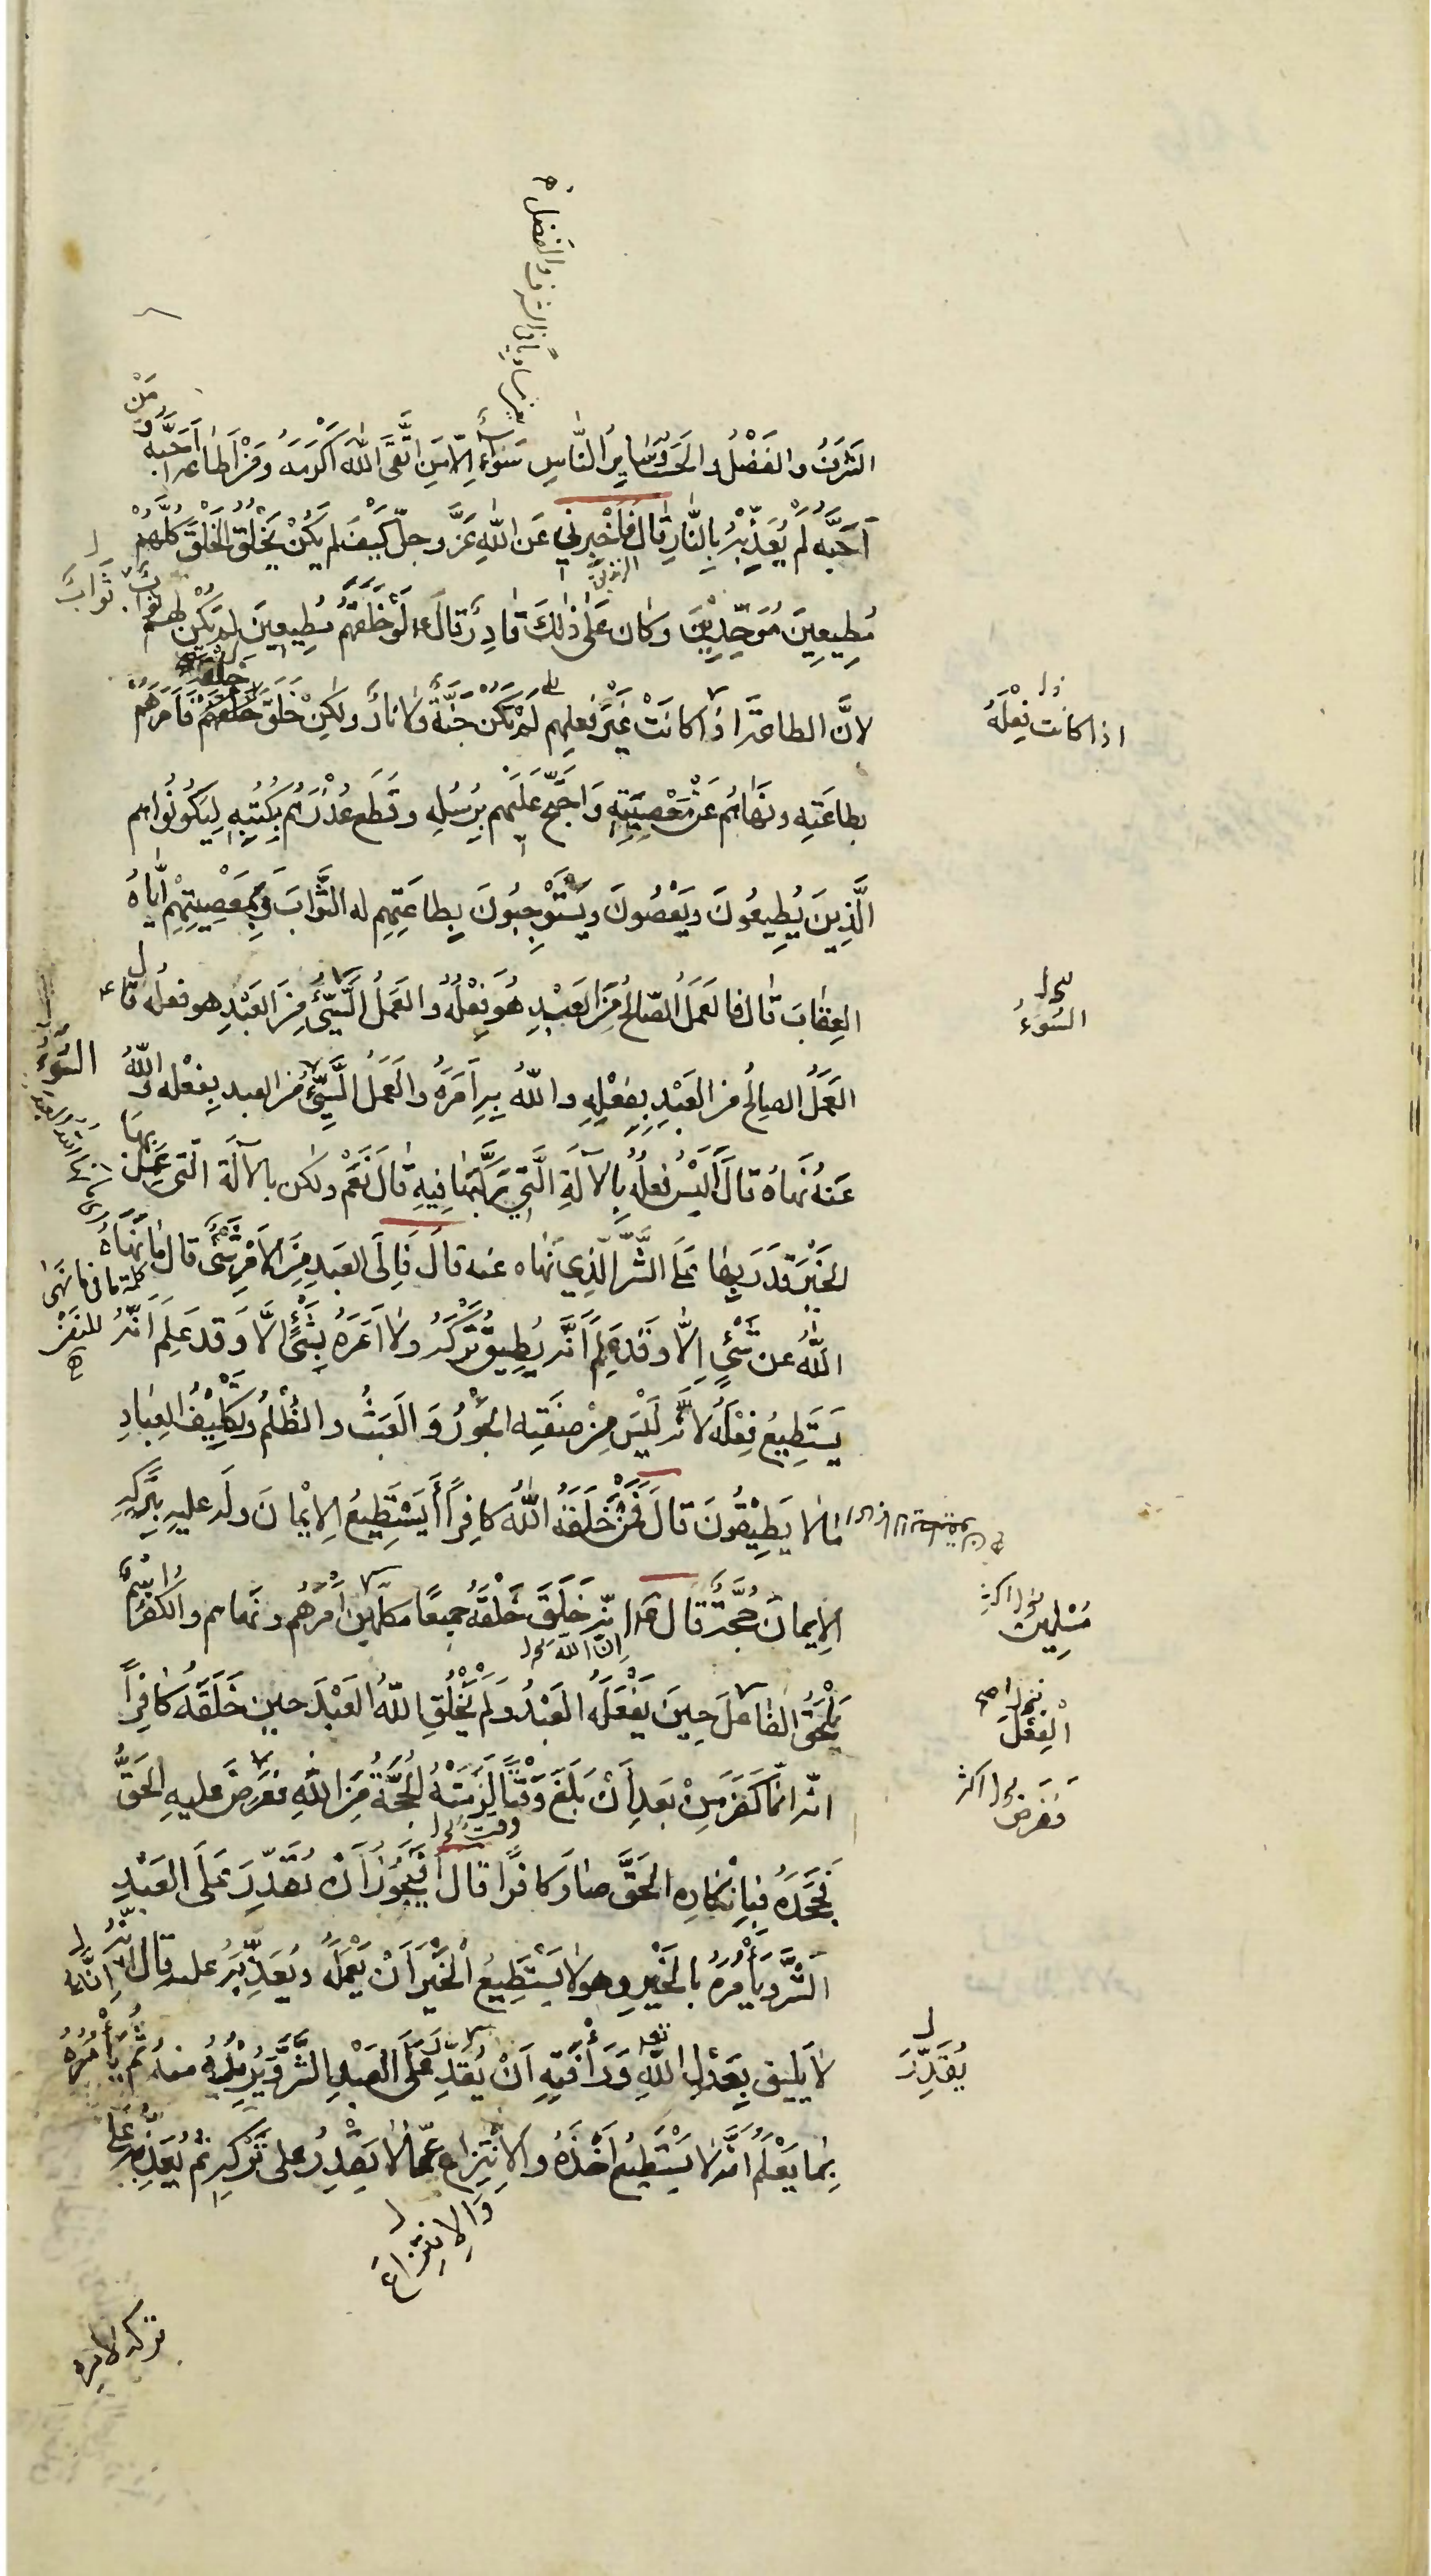 الشَّرَفُ والفَضْلُ والحَسَبُ وسَايِرُ النَّاسِ سَوَاءٌ اِلّا مَنِ اتَّقَى اللهَ اَكْرَمَهُ وَمَنْ اَطاعَه اَحَبَّهُ وَمَنْ
اَحَبَّهُ لَمْ يُعَذِّبْهُ بِالنَّارِ قَالَ فَاَخْبِرْنِي عَنِ اللهِ عَزَّ وجلّ كَيْفَ لم يَكُنْ يَخْلُقُ الخَلْقَ كُلَّهُمْ
مُطِيعِينَ مُوَحِّدِيْنَ وكَانَ عَلَى ذٰلِكَ قَادِرًا قَالَ ع لَوْ خَلَقَهُمْ مُطِيعِينَ لم يَكُنْ لهم ثَوابٌ
ثَوَابَ
لانَّ الطاعَةَ اذا كانَتْ غَيْرَ فعلِهم لَمْ يَكُنْ جَنَّةٌ ولا نارٌ ولكِنْ خَلَقَ خَلْقَهُ فَاَمَرَهُمْ
اذا كانت فِعْلَهُ
بطاعَتِه ونَهَاهُم عَنْ مَعْصِيَتِهِ وَاحْتَجَّ عَلَيْهِم بِرُسُلِهِ وقَطَعَ عُذْرَهُم بِكُتُبِهِ لِيَكُونُوا هم
الَّذِينَ يُطِيعُونَ ويَعْصُونَ ويَسْتَوْجِبُونَ بِطاعَتِهِم له الثَّوَابَ وَبِمَعْصِيَتِهِمْ اِيَّاهُ
العِقَابَ قَالَ فالعَمَلُ الصّالحُ مِنَ العَبْدِ هُوَ فِعْلُهُ والعَمَلُ السَّيِّئُ مِنَ العَبْدِ هو فعلُه قال ع
السُّوءُ
العَمَلُ الصالحُ من العَبْدِ بِفِعْلِهِ واللهُ بِهِ اَمَرَهُ والعَمَلُ السَّيِّئُ من العبدِ بِفِعْلِه واللهُ
السُّوءُ
عَنهُ نَهاهُ قالَ اَلَيْسَ فِعلُهُ بِالآلَةِ الَّتِي رَكَّبَهَا فِيهِ قَالَ نَعَمْ ولكن بالآلَةِ الّتي عَمِلَ بِهَا
الخَيْرَ قَدَرَ بِهَا عَلَى الشَّرِّ الَّذِي نَهَاه عنه قالَ فَاِلَى العَبدِ مِنَ الاَمْرِ شَيْءٌ قالَ مَا نَهَاهُ
كلمة ما في ما نهى للنفي
اللّٰهُ عن شَيْءٍ اِلَّا وَقَدْ عَلِمَ اَنَّهُ يُطِيقُ تَرْكَهُ ولا اَمَرَهُ بِشَيْءٍ اِلَّا وَقد عَلِمَ اَنَّهُ
يَسْتَطِيعُ فِعْلَهُ لانّه لَيْسَ مِنْ صِفَتِه الجَوْرُ وَالعَبَثُ والظُّلْمُ وتَكْلِيْفُ العِبَادِ
مَا لا يُطِيقُونَ قالَ فَمَنْ خَلَقَهُ اللّٰهُ كافِرًا أَيَسْتَطِيعُ الاِيْمَانَ ولَه عليهِ بِتَرْكِهِ
الاِيمانَ حُجَّةٌ قَالَ ع انّ اللهَ خَلَقَ خَلْقَهُ جميعًا مسلمين اَمَرَهُم ونَهَاهم والكفرُ اسْمٌ
مُسْلِمِينَ
انّ اللهَ
يَلْحَقُ الفاعلَ حِينَ يَفْعَلُهُ العَبْدُ وَلَمْ يَخْلُقِ اللّٰهُ العَبْدَ حين خَلَقَهُ كافِرًا
الْفِعْلَ
انّه انّما كَفَرَ مِنْ بَعدِ اَنْ بَلَغَ وَقْتًا لَزِمَتْهُ الحُجَّةُ مِنَ اللهِ فعَرَضَ عليهِ الحَقَّ
فَعَرَضَ
وقت
فَجَحَدَهُ فبِاِنْكَارِهِ الحَقَّ صَارَ كافِرًا قالَ اَفَيَجُوزُ اَنْ يُقَدِّرَ عَلَى العَبْدِ
الشَّرَّ ويَأْمُرُهُ بالخَيْرِ وهو لا يَسْتَطِيعُ الْخَيْرَ اَنْ يَعْمَلَهُ ويُعَذِّبُهُ عليه قالَ انّهُ
اِنَّهُ
لا يَلِيقُ بِعَدْلِ اللهِ وَرَأْفَتِهِ اَنْ يُقَدِّرَ عَلَى العَبْدِ الشَّرَّ ويُرِيْدُهُ منه ثُمَّ يَأْمُرُهُ
يُقَدِّرَ
بِمَا يَعْلَمُ انّه لا يَسْتَطِيعُ اَخْذَهُ والاِنْتِزَاعِ عَمّا لا يَقْدِرُ على تَرْكِهِ ثمّ يُعَذِّبُهُ عَلَى
وَالاِنْتِزَاعَ
تركه لامره